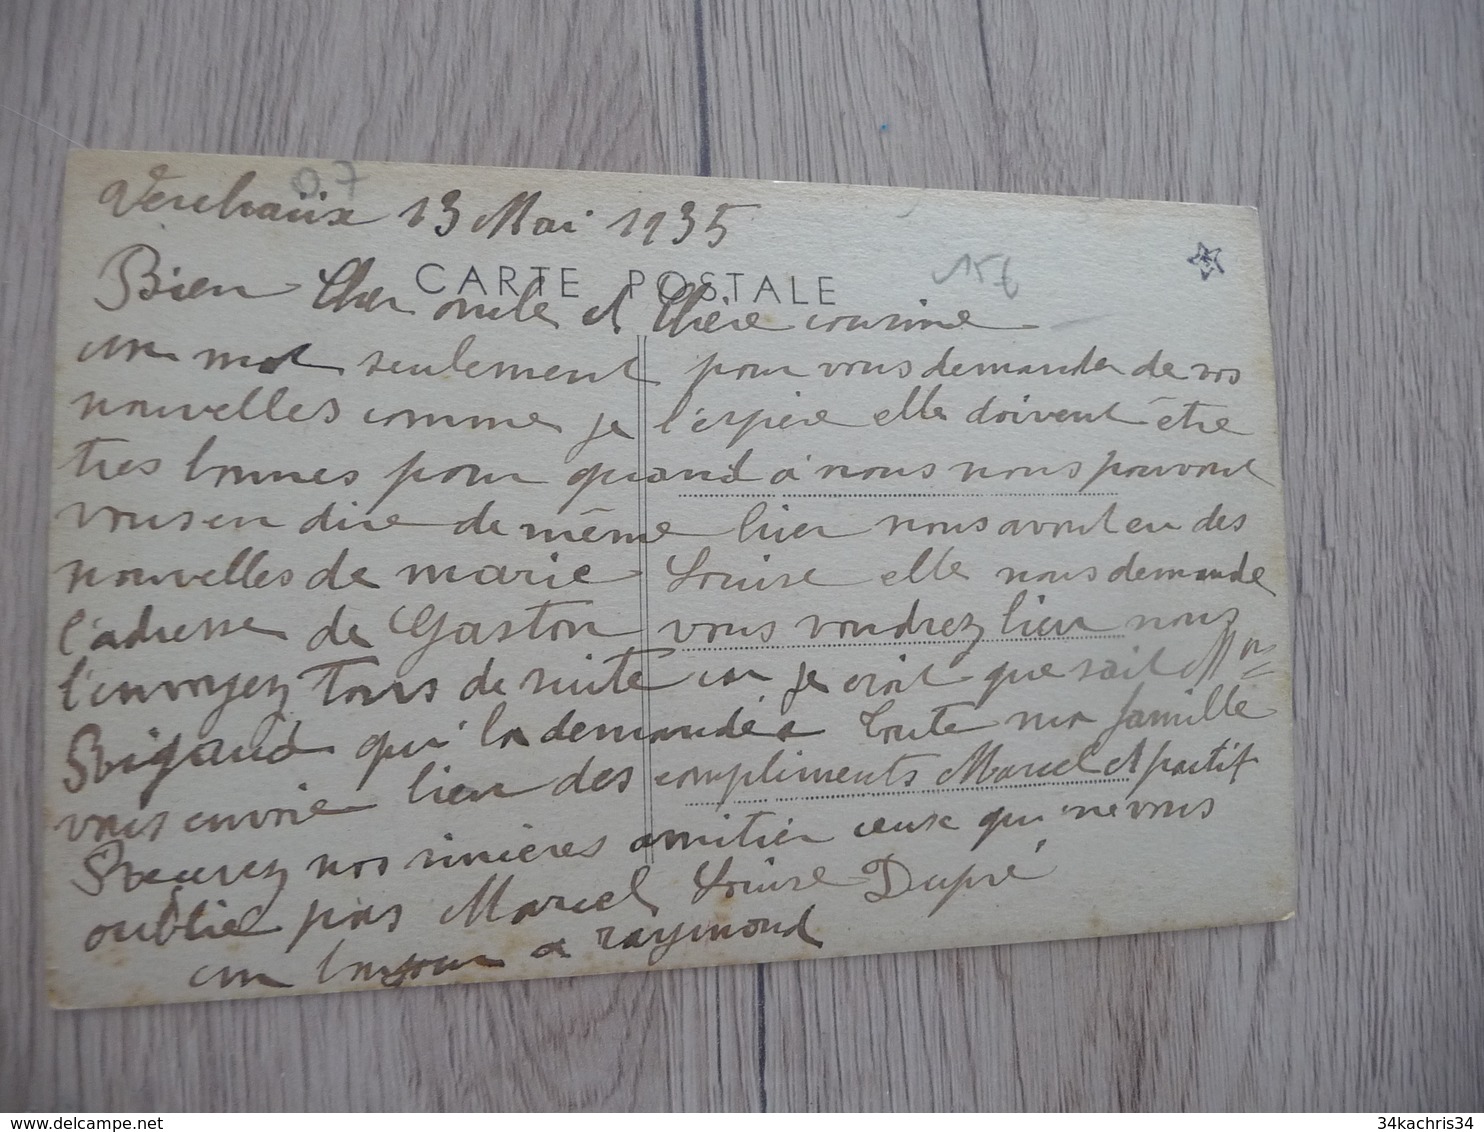 Verchaüix 13 Mai 1935
07
CARTE POSTALE
15€
Bien Cher oncle et Chère cousine
un mot seulement pour vous demander de vos
nouvelles comme je l'espère elle doivent être
tres bonnes pour quand à nous nous pouvont
vous en dire de même hier nous avont eu des
nouvelles de marie Louise elle nous demande
l'adresse de Gaston vous voudrez bien nous
l'envoyez tous de suite car je croit que sait Mon
Rigaud qui la demandée toute ma famille
vous envoie bien des compliments Marcel et
Recevez nos sinières amitier ceux qui ne vous
oublie pas Marcel Louise Dupré
un bonjour a raymond
34kachris34